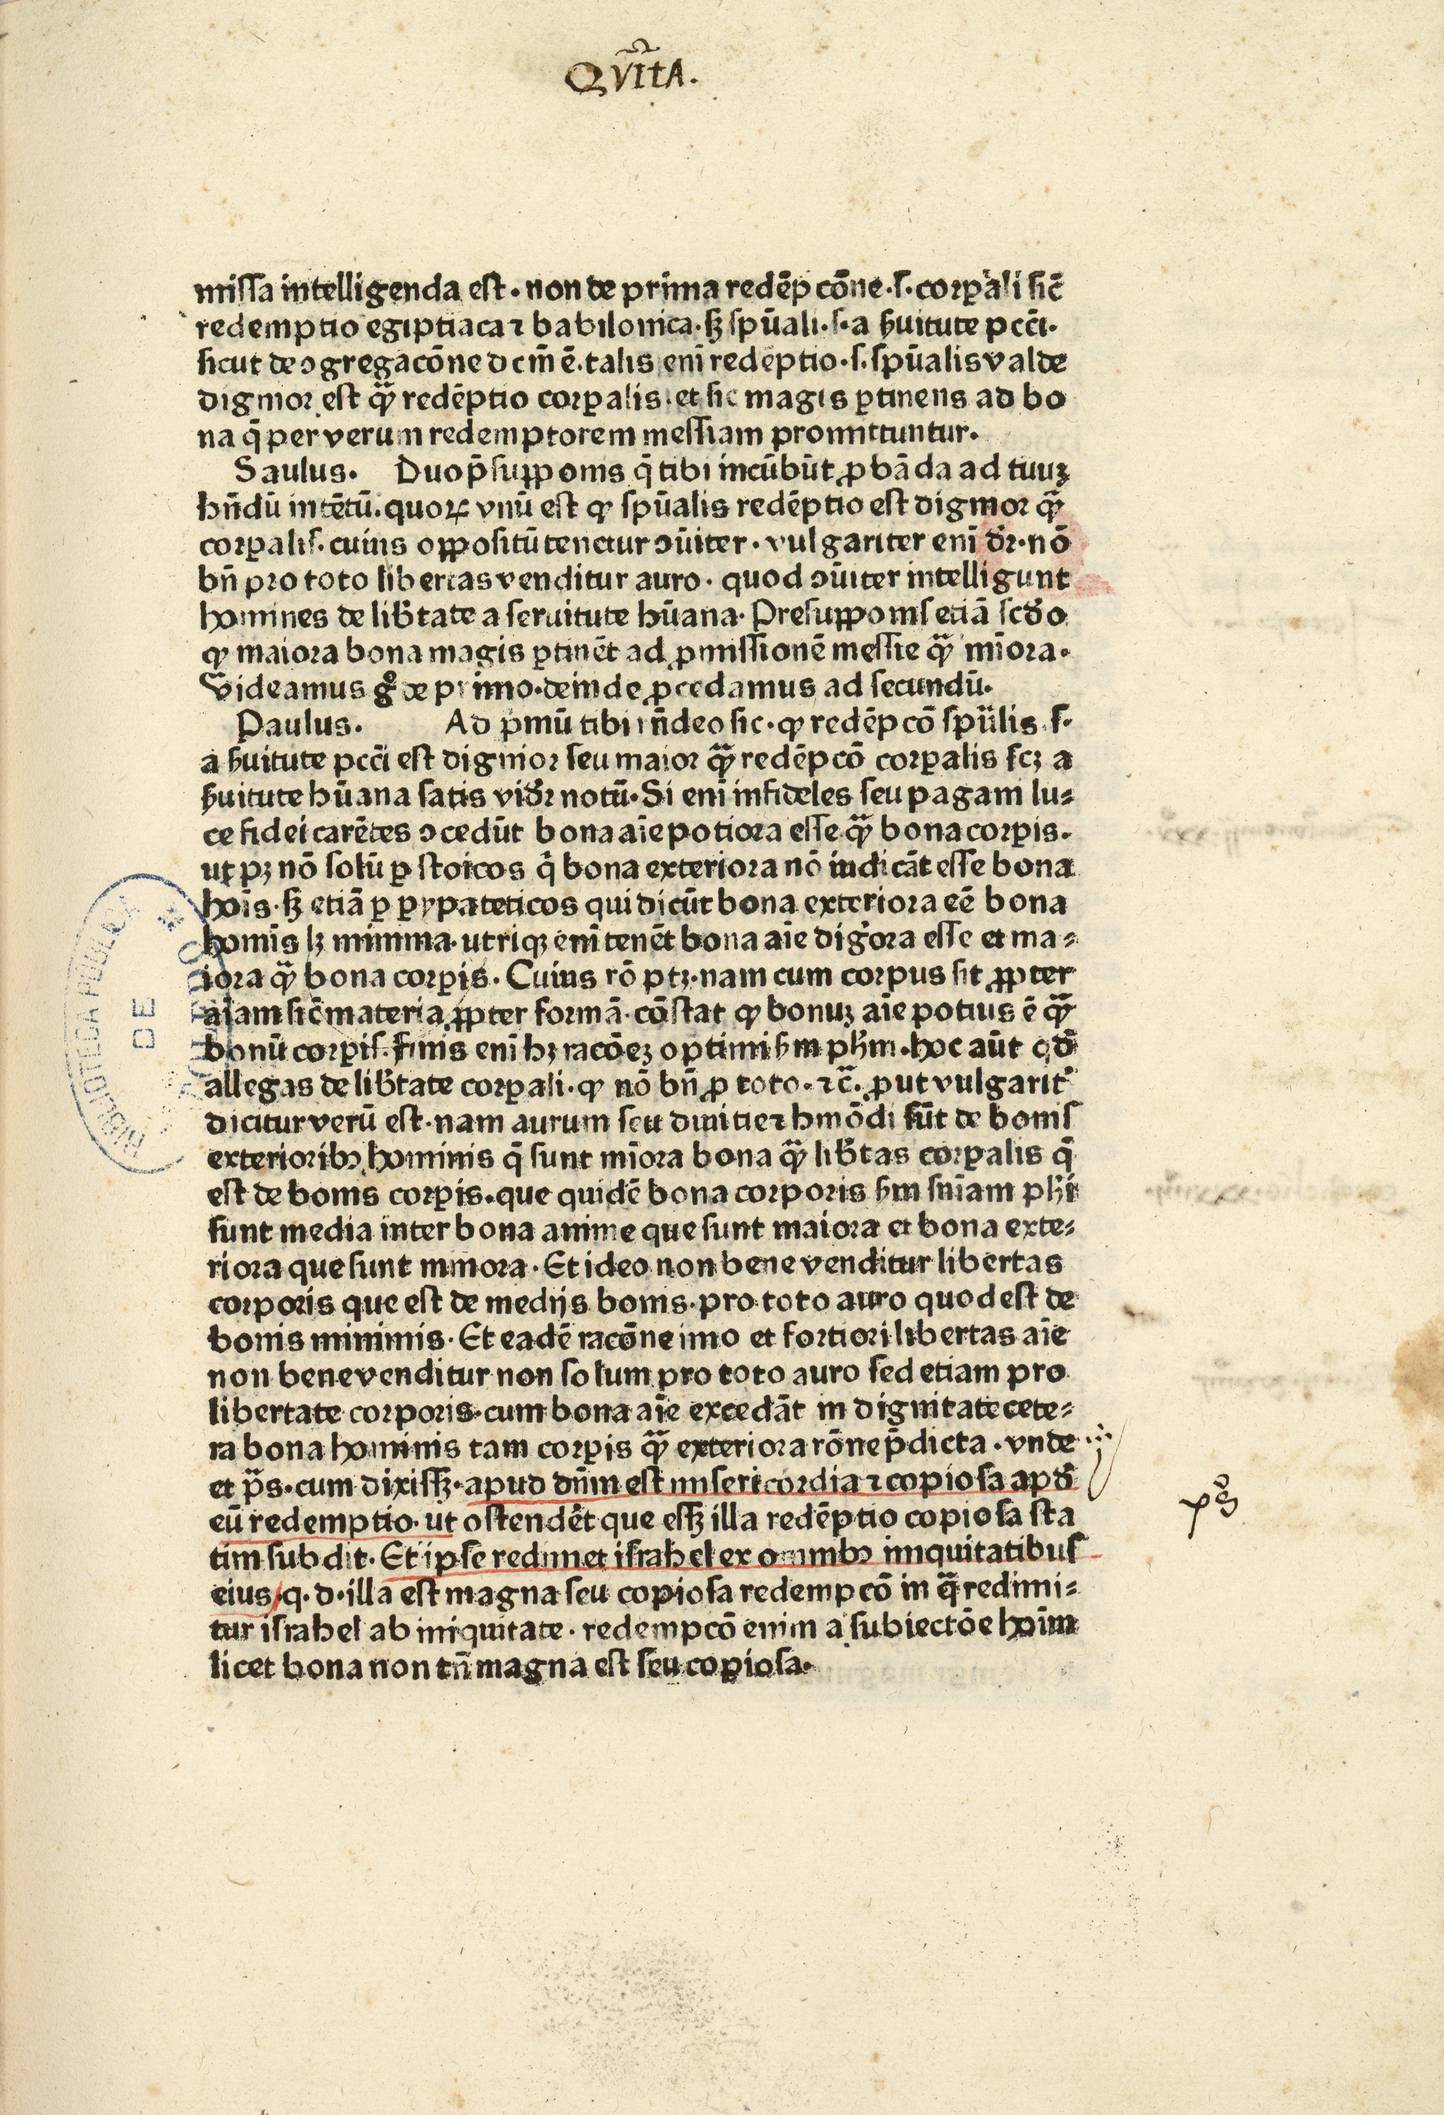 QVĨTA.
missa intelligenda est. non de prima redẽpcõne .s. corꝑali sic̃
redemptio egiptiaca ⁊ babilonica. sꝫ spũali .s. a ẜuitute pcc̃i.
sicut de ɔgregacõne dcm̃ ẽ. talis eni redẽptio .s. spũalis valde
dignior est qᷓꝫ redẽptio corꝑalis. et sic magis ꝑtinens ad bo
na q̃ per verum redemptorem messiam promittuntur.
Saulus. Duo p̃suppoms q̃ tibi incũbũt ꝓbãda ad tuuꝫ
hñdũ intẽtũ. quoꝝ vnũ est ꝙ spũalis redẽptio est dignior qᷓꝫ
corꝑalis. cuius oppositũ tenetur ɔũiter. vulgariter eni dr̃. nõ
bñ pro toto libertas venditur auro. quod ɔũiter intelligunt
homines de lib̃tate a seruitute hũana. Presupponis etiã scdo
ꝙ maiora bona magis ꝑtinẽt ad ꝓmissionẽ messie qᷓꝫ mĩora.
Videamus gͦ de primo. deinde ꝓcedamus ad secundũ.
Paulus. Ad pͥmũ tibi rñdeo sic. ꝙ redẽpcõ spũlis .s.
a ẜuitute pcc̃i est dignior seu maior qᷓꝫ redẽpcõ corꝑalis scꝫ a
ẜuitute hũana satis vidr̃ notũ. Si eni infideles seu pagani lu-
ce fidei carẽtes ɔcedũt bona aĩe potiora esse qᷓꝫ bona corꝑis.
ut pꝫ nõ solũ ꝑ stoicos q̃ bona exteriora nõ iudicãt esse bona
hoĩs. sꝫ etiã ꝑ ꝑypateticos qui dicũt bona exteriora eẽ bona
homĩs lꝫ minima. utriqꝫ eni tenẽt bona aĩe digͦora esse et ma-
iora qᷓꝫ bona corꝑis. Cuius rõ ptꝫ. nam cum corpus sit ꝓpter
aĩam sic̃ materia ꝓpter formã. cõstat ꝙ bonuꝫ aĩe potius ẽ qᷓꝫ
bonũ corꝑis. finis eni hꝫ racõeꝫ optimi ẜm pħm. hoc aũt qd̃
allegas de lib̃tate corꝑali. ꝙ nõ bñ ꝓ toto. ⁊c̃. ꝓut vulgarit᷑
dicitur verũ est. nam aurum seu diuitie ⁊ hmõdi sũt de bonis
exterioribꝫ hominis q̃ sunt mĩora bona qᷓꝫ lib̃tas corꝑalis q̃
est de bonis corꝑis. que quidẽ bona corporis ẜm sniam pħi
sunt media inter bona anime que sunt maiora et bona exte-
riora que sunt minora. Et ideo non bene venditur libertas
corporis que est de medijs bonis. pro toto auro quod est de
bonis minimis. Et eadẽ racõne imo et fortiori libertas aĩe
non bene venditur non solum pro toto auro sed etiam pro
libertate corporis. cum bona aĩe excedãt in dignitate cete-
ra bona hominis tam corꝑis qᷓꝫ exteriora rõne p̃dicta. vnde
et pͣs. cum dixissꝫ. apud dñm est misericordia ⁊ copiosa apd̃
eũ redemptio. ut ostenderet que essꝫ illa redẽptio copiosa sta
tim subdit. Et ipse redimet israhel ex omnibꝫ iniquitatibus
eius / q. d. illa est magna seu copiosa redempcõ in qᷓ redimi-
tur israhel ab iniquitate. redempcõ enim a subiectõe hoĩm
licet bona non tñ magna est seu copiosa.
BIBLIOTECA PUBLICA
DE